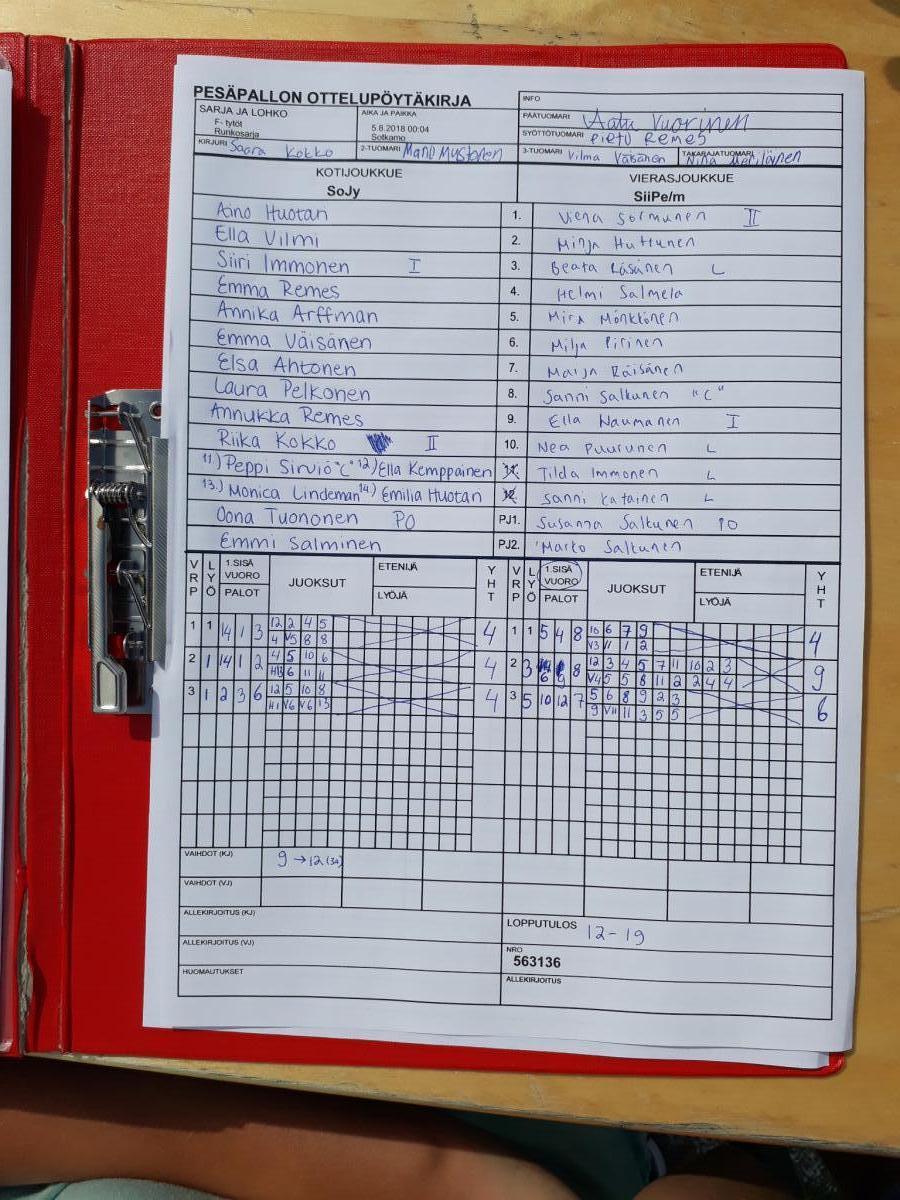 PESÄPALLON OTTELUPÖYTÄKIRJA
INFO
SARJA JA LOHKO
F- tytöt
Runkosarja
AIKA JA PAIKKA
5.8.2018 00:04
Sotkamo
PÄÄTUOMARI Aatu Vuorinen
SYÖTTÖTUOMARI Pietu Remes
KIRJURI Saara Kokko
2-TUOMARI Manu Mustonen
3-TUOMARI Vilma Väisänen
TAKARAJATUOMARI Nina Meriläinen
KOTIJOUKKUE
SoJy
VIERASJOUKKUE
SiiPe/m
Aino Huotari 1. Viena Sormunen II
Ella Vilmi 2. Minja Huttunen
Siiri Immonen I 3. Beata Räsänen L
Emma Remes 4. Helmi Salmela
Annika Arffman 5. Mira Mönkkönen
Emma Väisänen 6. Milja Piirinen
Elsa Ahtonen 7. Maija Räisänen
Laura Pelkonen 8. Sanni Salkunen "C"
Annukka Remes 9. Ella Naumanen I
Riika Kokko II 10. Nea Puurunen L
11.) Peppi Sirviö "C" 12.) Ella Kemppainen 11. Tilda Immonen L
13.) Monica Lindeman 14.) Emilia Huotari 12. Sanni Katainen L
Oona Tuononen PO PJ1. Susanna Salkunen PO
Emmi Salminen PJ2. Marko Salkunen
VRP LYÖ 1.SISÄ VUORO PALOT JUOKSUT ETENIJÄ LYÖJÄ YHT VRP LYÖ 1.SISÄ VUORO PALOT JUOKSUT ETENIJÄ LYÖJÄ YHT
1 1 14 1 3 12 2 4 5 4 1 1 5 4 8 10 6 7 9 4
4 V5 8 8 V3 V11 1 2
2 1 14 1 2 4 5 10 6 4 2 3 6 8 12 3 4 5 7 11 10 2 3 9
6 11 11 V4 5 5 8 11 2 2 4 4
3 1 2 3 6 12 5 10 8 4 3 5 10 12 7 5 6 8 9 2 3 6
H1 V6 V6 13 9 V11 11 3 5 5
VAIHDOT (KJ) 9 → 12 (3A)
VAIHDOT (VJ)
ALLEKIRJOITUS (KJ)
LOPPUTULOS 12-19
ALLEKIRJOITUS (VJ)
NRO
563136
HUOMAUTUKSET
ALLEKIRJOITUS